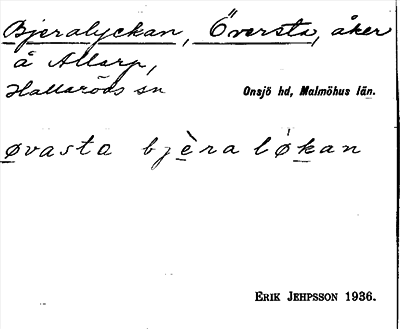 Bjeralyckan, Översta, åker
å Allarp,
Hallaröds sn Onsjö hd, Malmöhus län.
øvasta bjèraløkan
ERIK JEHPSSON 1936.